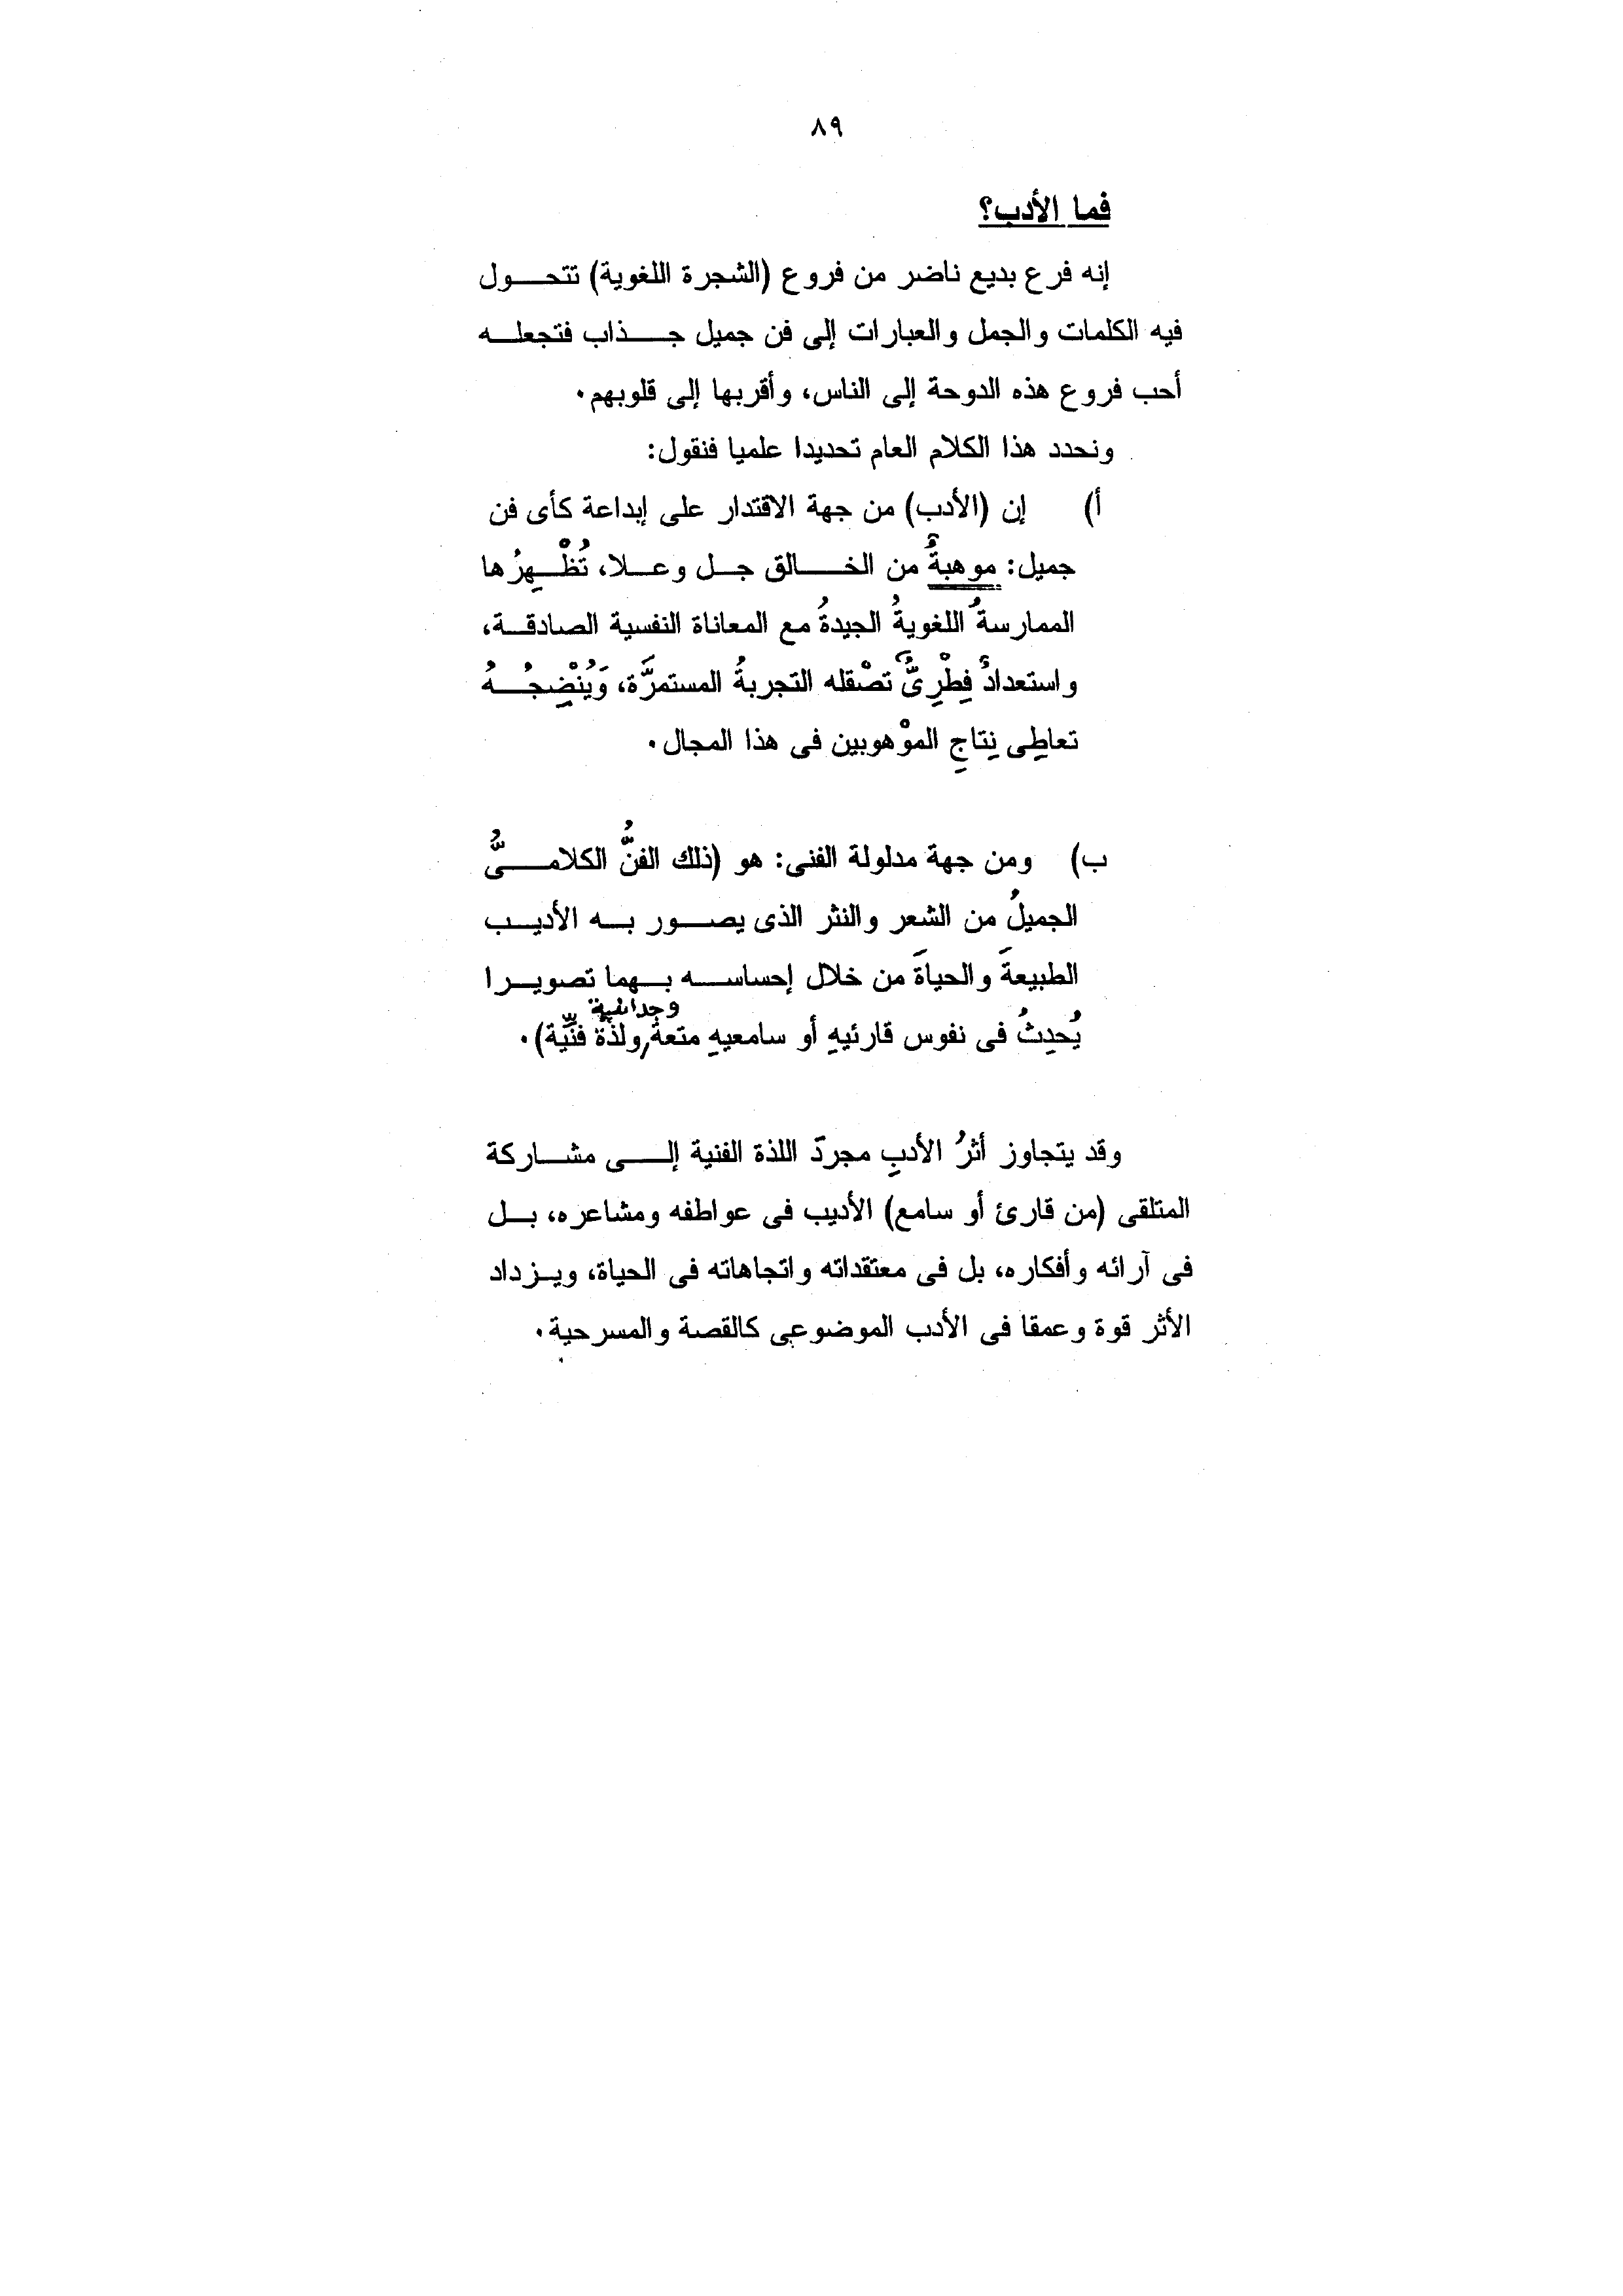 ٨٩
فما الأدب؟
إنه فرع بديع ناضر من فروع (الشجرة اللغوية) تتحول
فيه الكلمات والجمل والعبارات إلى فن جميل جذاب فتجعله
أحب فروع هذه الدوحة إلى الناس، وأقربها إلى قلوبهم.
ونحدد هذا الكلام العام تحديدا علميا فنقول:
أ) إن (الأدب) من جهة الاقتدار على إبداعة كأى فن
جميل: موهبةٌ من الخالق جل وعلا، تُظْهِرُها
الممارسةُ اللغويةُ الجيدةُ مع المعاناة النفسية الصادقة،
واستعدادٌ فِطْرِىٌّ تصْقله التجربةُ المستمرَّة، وَيُنْضِجُهُ
تعاطِى نِتاجِ الموْهوبين فى هذا المجال.
ب) ومن جهة مدلولة الفنى: هو (ذلك الفنُّ الكلامىُّ
الجميلُ من الشعر والنثر الذى يصور به الأديب
الطبيعةَ والحياةَ من خلال إحساسه بهما تصويرا
يُحدِثُ فى نفوس قارئيهِ أو سامعيهِ متعة وجدانية ولذَّة فنِّية).
وقد يتجاوز أثرُ الأدبِ مجردّ اللذة الفنية إلى مشاركة
المتلقى (من قارئ أو سامع) الأديب فى عواطفه ومشاعره، بل
فى آرائه وأفكاره، بل فى معتقداته واتجاهاته فى الحياة، ويزداد
الأثر قوة وعمقا فى الأدب الموضوعى كالقصة والمسرحية.